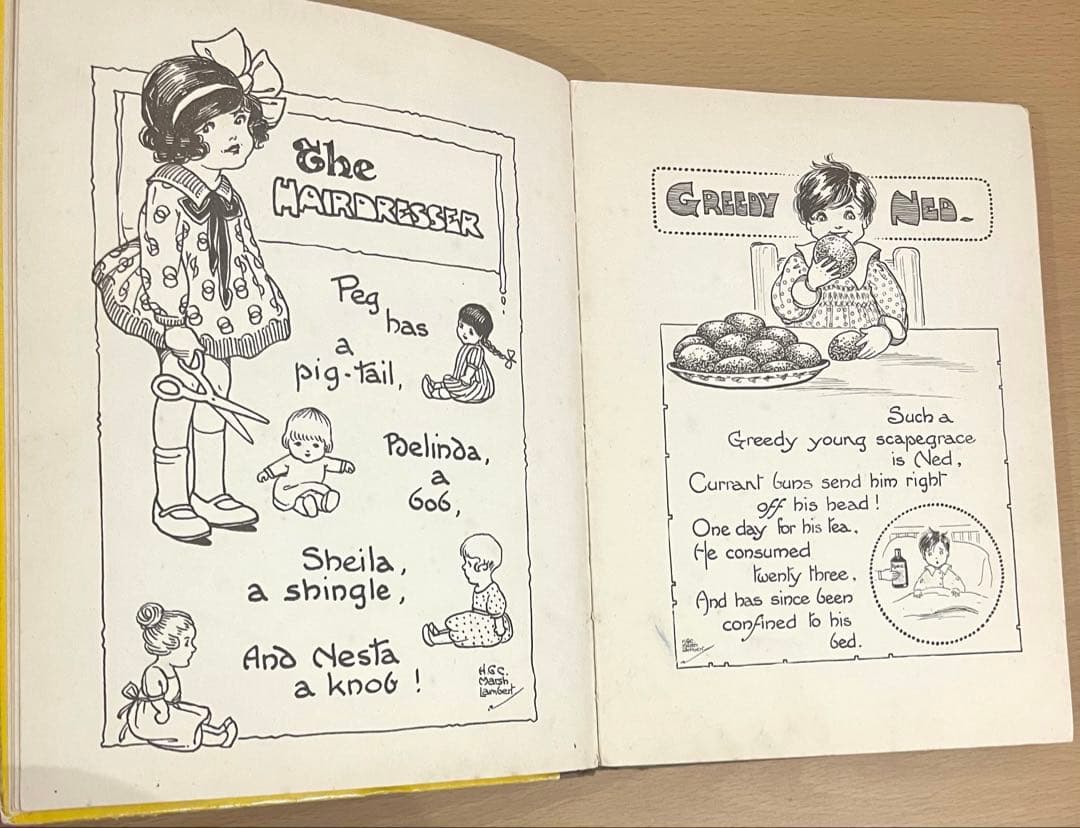 The
HAIRDRESSER
Peg
has
a
pig-tail,
Belinda,
a
bob,
Sheila,
a shingle,
And Nesta
a knob!
H.G.C.
Marsh
Lambert
GREEDY NED-
Such a
Greedy young scapegrace
is Ned,
Currant buns send him right
off his head!
One day for his tea,
He consumed
twenty three,
And has since been
confined to his
bed.